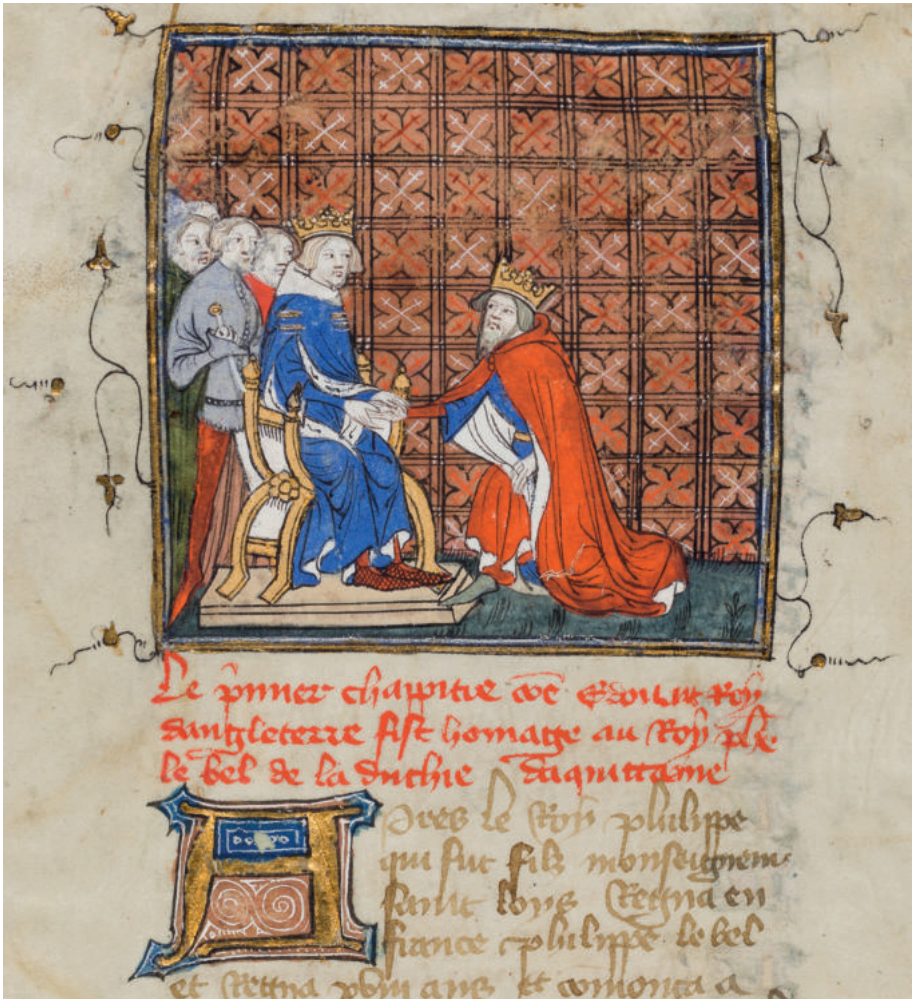 Le p̃mier chappitre cõe Edouart Roy
dangleterre fist homage au Roy phẽ
le bel de la duchie daquittaine
Apres le Roy philippe
qui fut filz monseigneur
saint loys Regna en
france philippe le bel
et Regna xxviii ans et comenca a